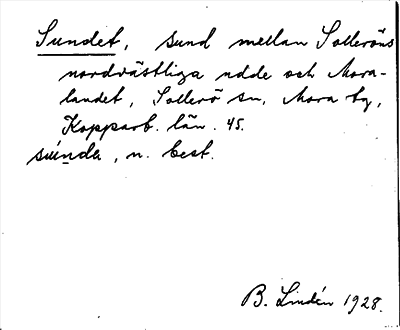 Sundet, sund mellan Solleröns
nordvästliga udde och Mora-
landet, Sollerö sn, Mora tg,
Kopparb. län. 45.
n. best.
B. Lindén 1928.